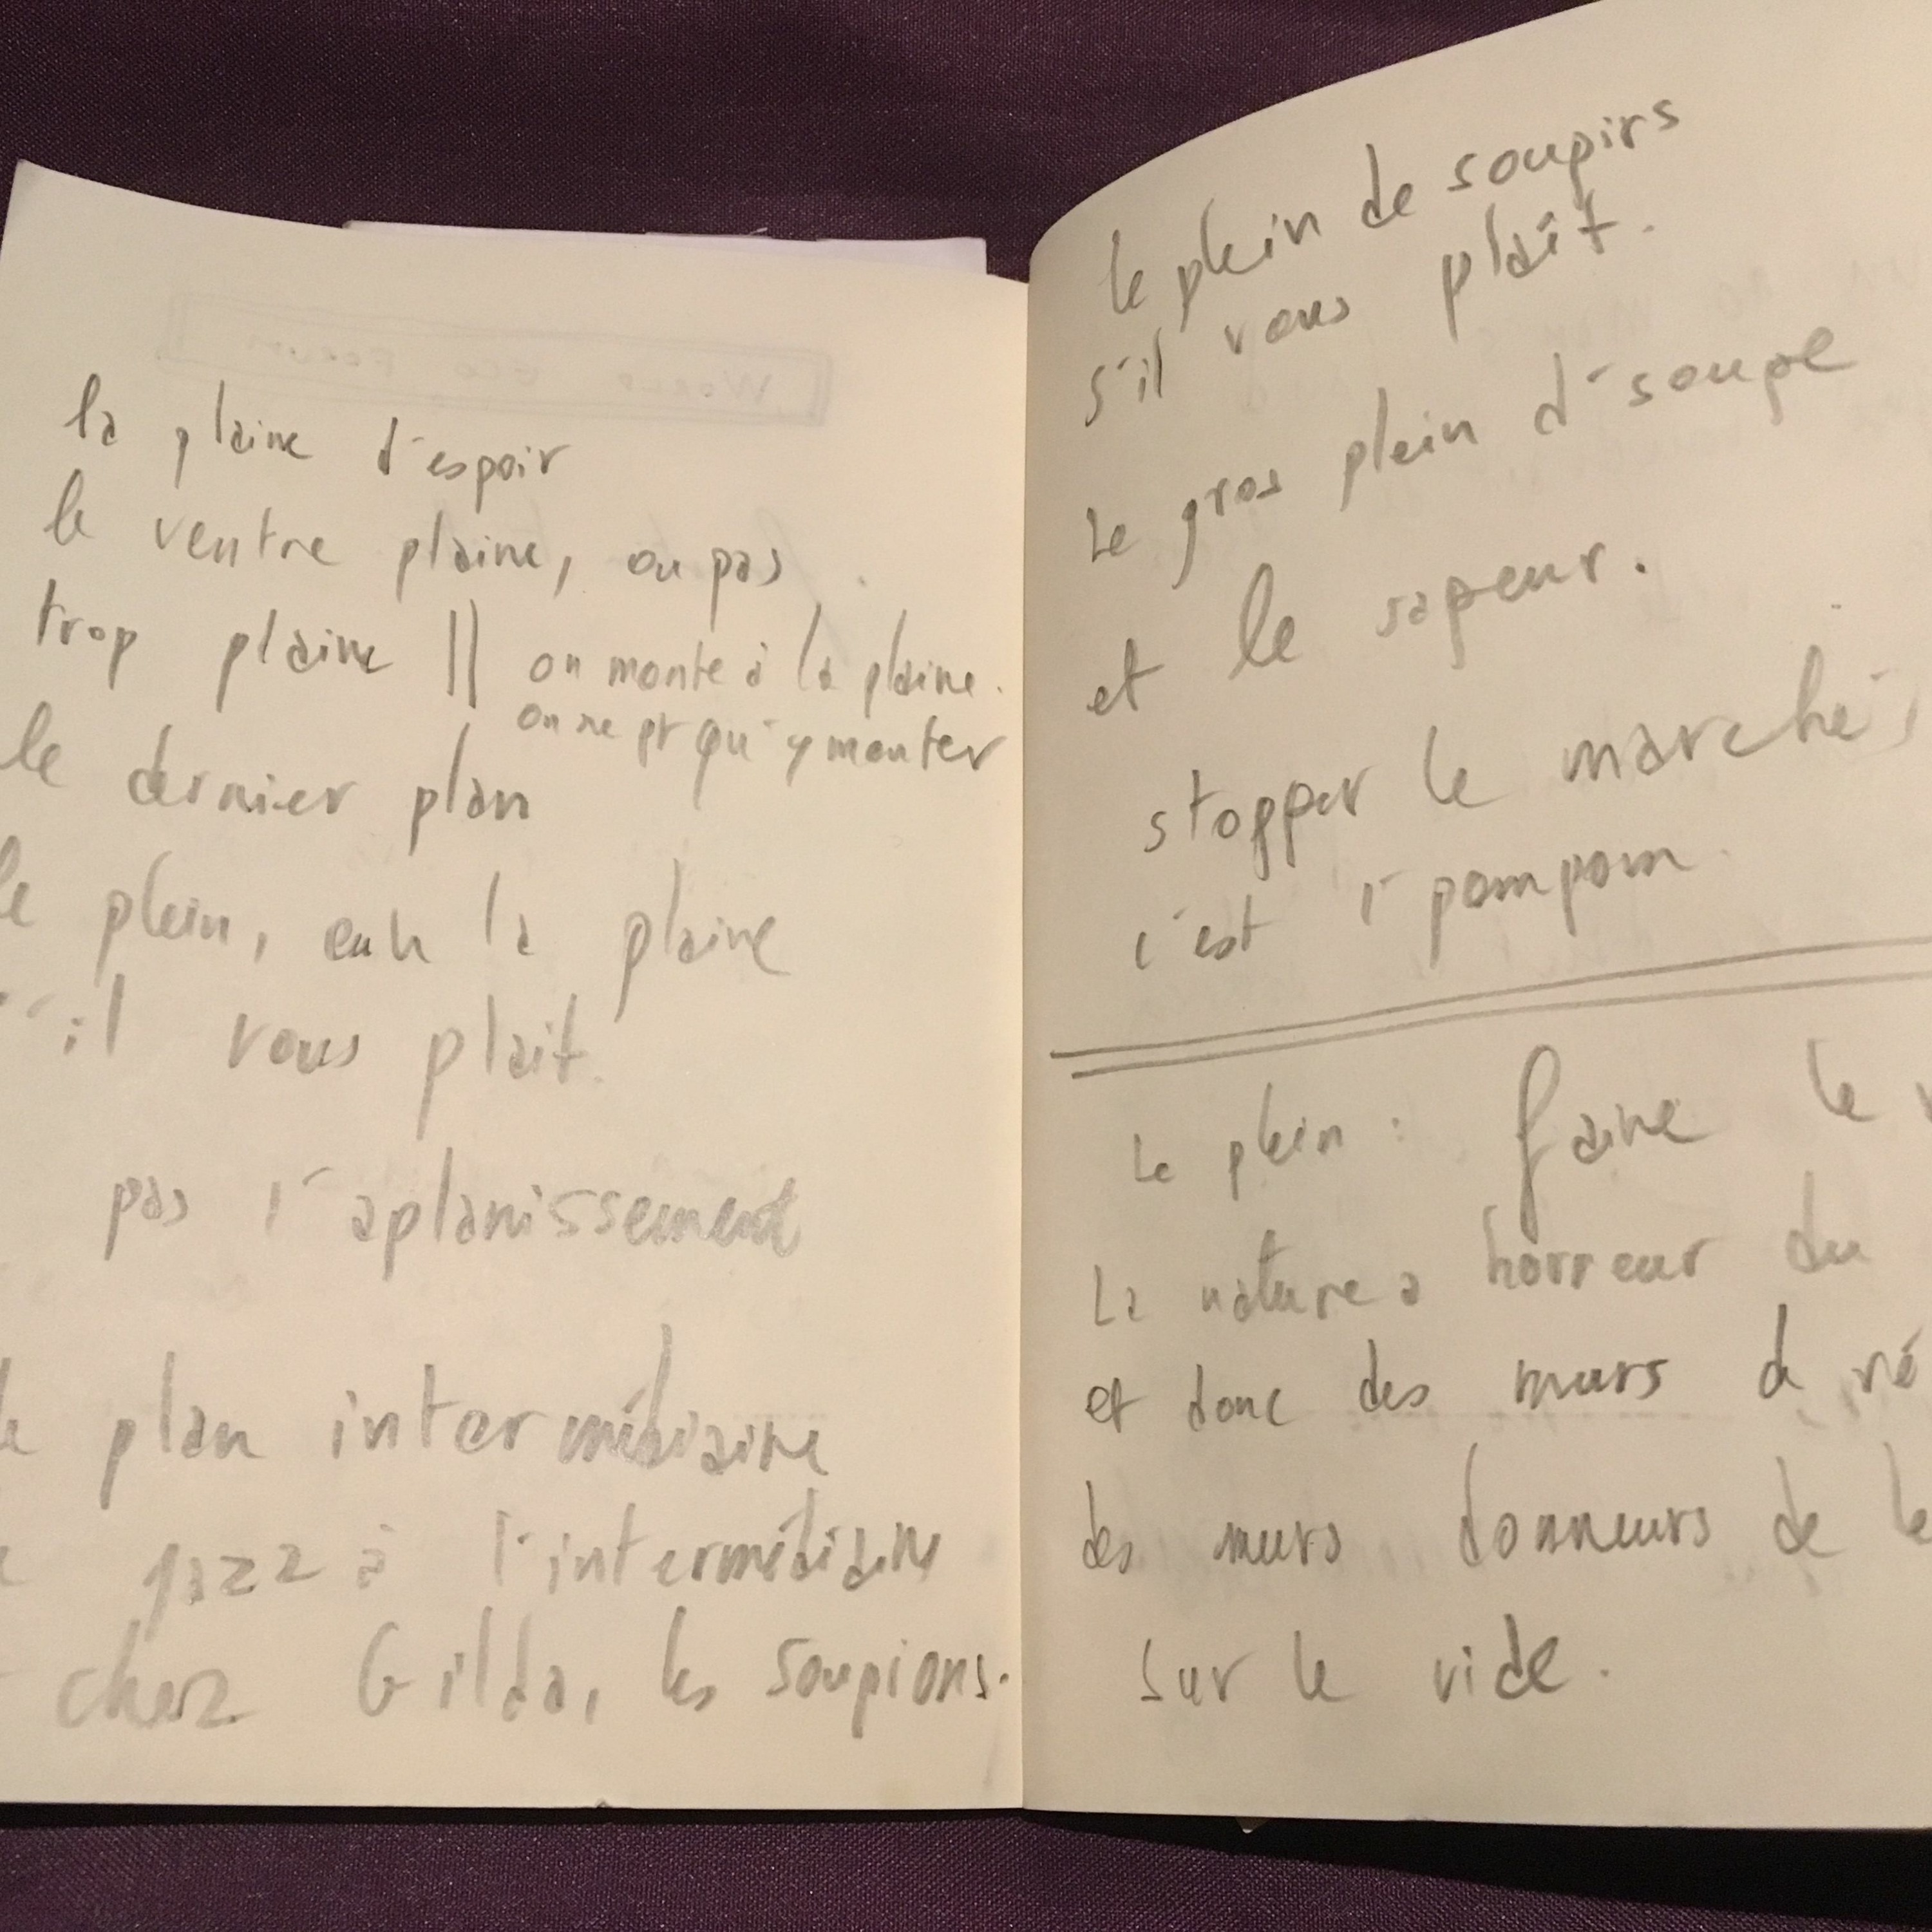 la plaine d'espoir
le ventre plaine, ou pas.
trop plaine || on monte à la plaine.
on ne pt qu'y monter
le dernier plan
le plein, euh la plaine
s'il vous plait.
pas l'aplanissement
le plan intermédiaire
jazz à l'intermédiaire
chez Gilda, les soupions.
le plein de soupirs
s'il vous plaît.
Le gros plein d'soupe
et le sapeur.
stopper le marché,
c'est l'pompom.
Le plein : faire le
La nature a horreur du
et donc des murs de
des murs donneurs de
sur le vide.